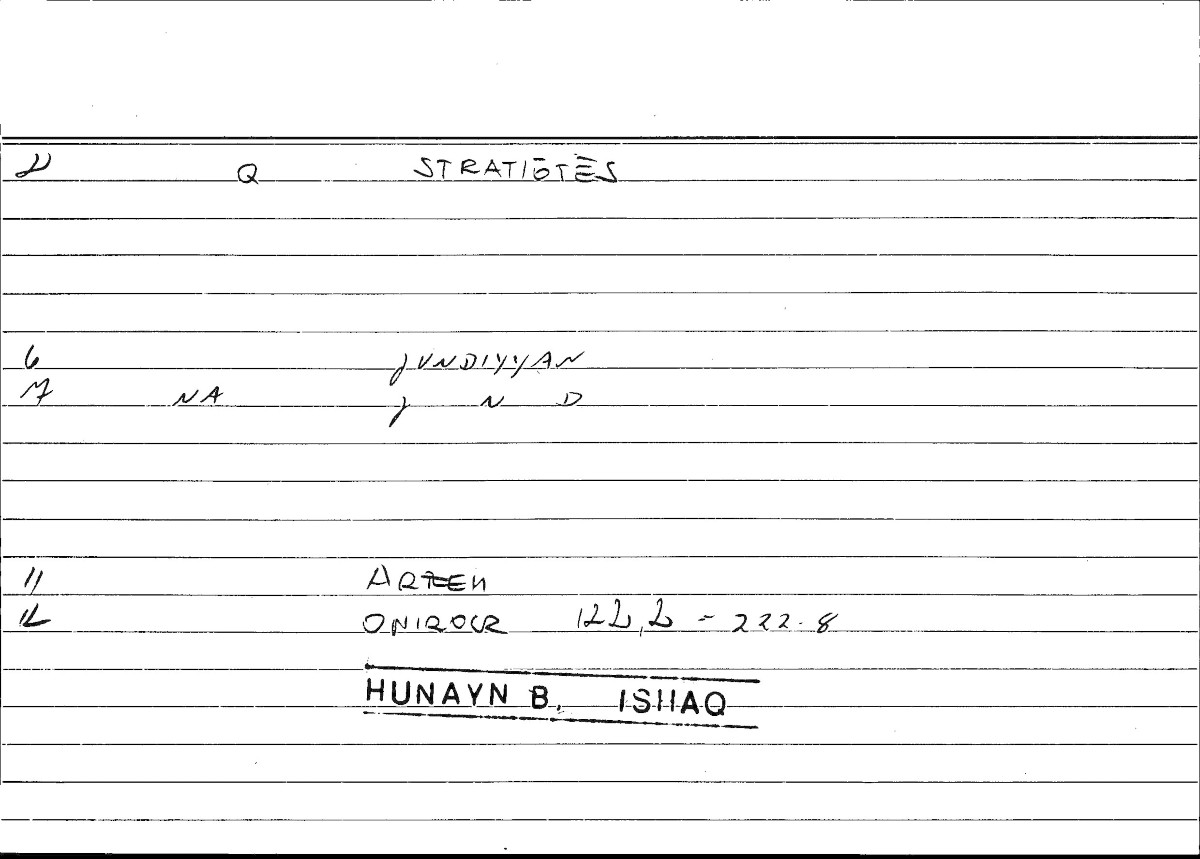 Q STRATIŌTĒS
6 JUNDIYYAN
7 NA J N D
11 ARTEM
12 ONIROCR 122,2 - 222.8
HUNAYN B. ISHAQ